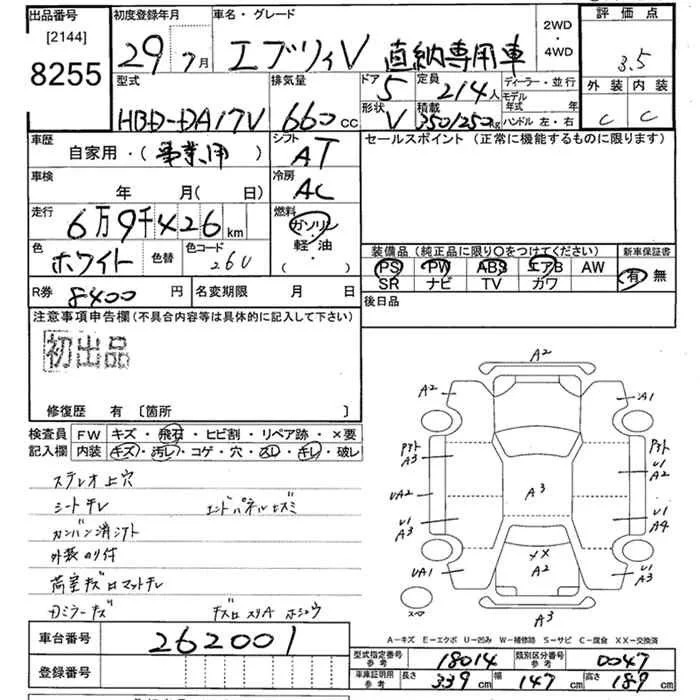 出品番号
[2144]
8255
初度登録年月
29年 7月
車名・グレード
エブリィV 直納専用車
2WD
・
4WD
評価点
3.5
外装 内装
C C
型式
HBD-DA17V
排気量
660cc
ドア
5
定員
2/4人
ディーラー・並行
モデル年式 年
形状
V
積載
350/250kg
ハンドル 左・右
車歴
自家用・(事業用)
シフト
AT
セールスポイント (正常に機能するものに限ります)
車検
年 月( 日)
冷房
AC
走行
6万9千426km
燃料
ガソリン
・
軽油
( )
色
ホワイト
色替
色コード
26U
装備品 (純正品に限り○をつけてください)
新車保証書
PS PW ABS エアB AW
SR ナビ TV カワ
有 無
R券
8400円
名変期限 月 日
後日品
注意事項申告欄(不具合内容等は具体的に記入して下さい)
初出品
修復歴 有〔箇所 〕
検査員
記入欄
FW キズ・飛石・ヒビ割・リペア跡・×要
内装 キズ・汚レ・コゲ・穴・スレ・キレ・破レ
ステレオ上穴
シートチレ
エンドパネルヒズミ
カンバン消シアト
外装のり付
荷室キズロマットチレ
Dミラーキズ
A2
A2
A1
A3
A3
U1
A2
UA2
A3
U1
A3
U1
A4
UA1
××
A2
U1
A3
A3
A-キズ E-エクボ U-凹み W-補修跡 S-サビ C-腐食 XX-交換済
車台番号
262001
登録番号
型式指定番号
参考
18014
類別区分番号
参考
0047
車庫証明用
参考
長さ
339cm
幅
147cm
高さ
189cm